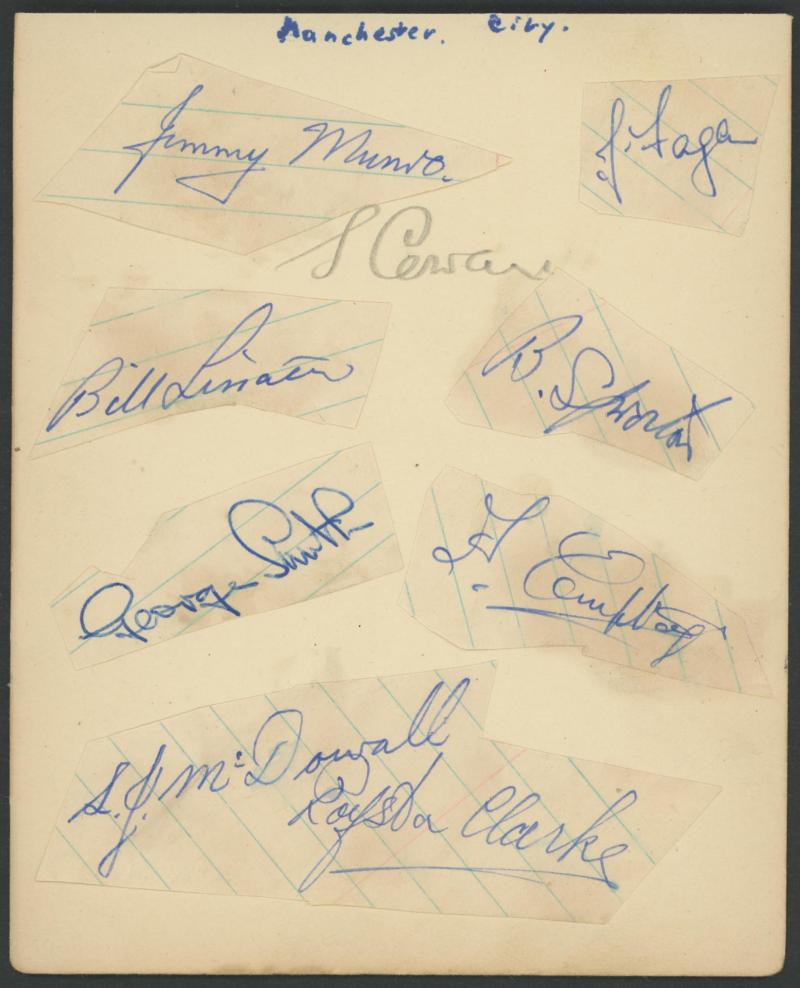 Manchester. City.
Jimmy Munro.
J. Fagan
S Cowan
Bill Linnaten
B. Sproston
George Smith
A. Emptage
S. J. McDowall
Royston Clarke